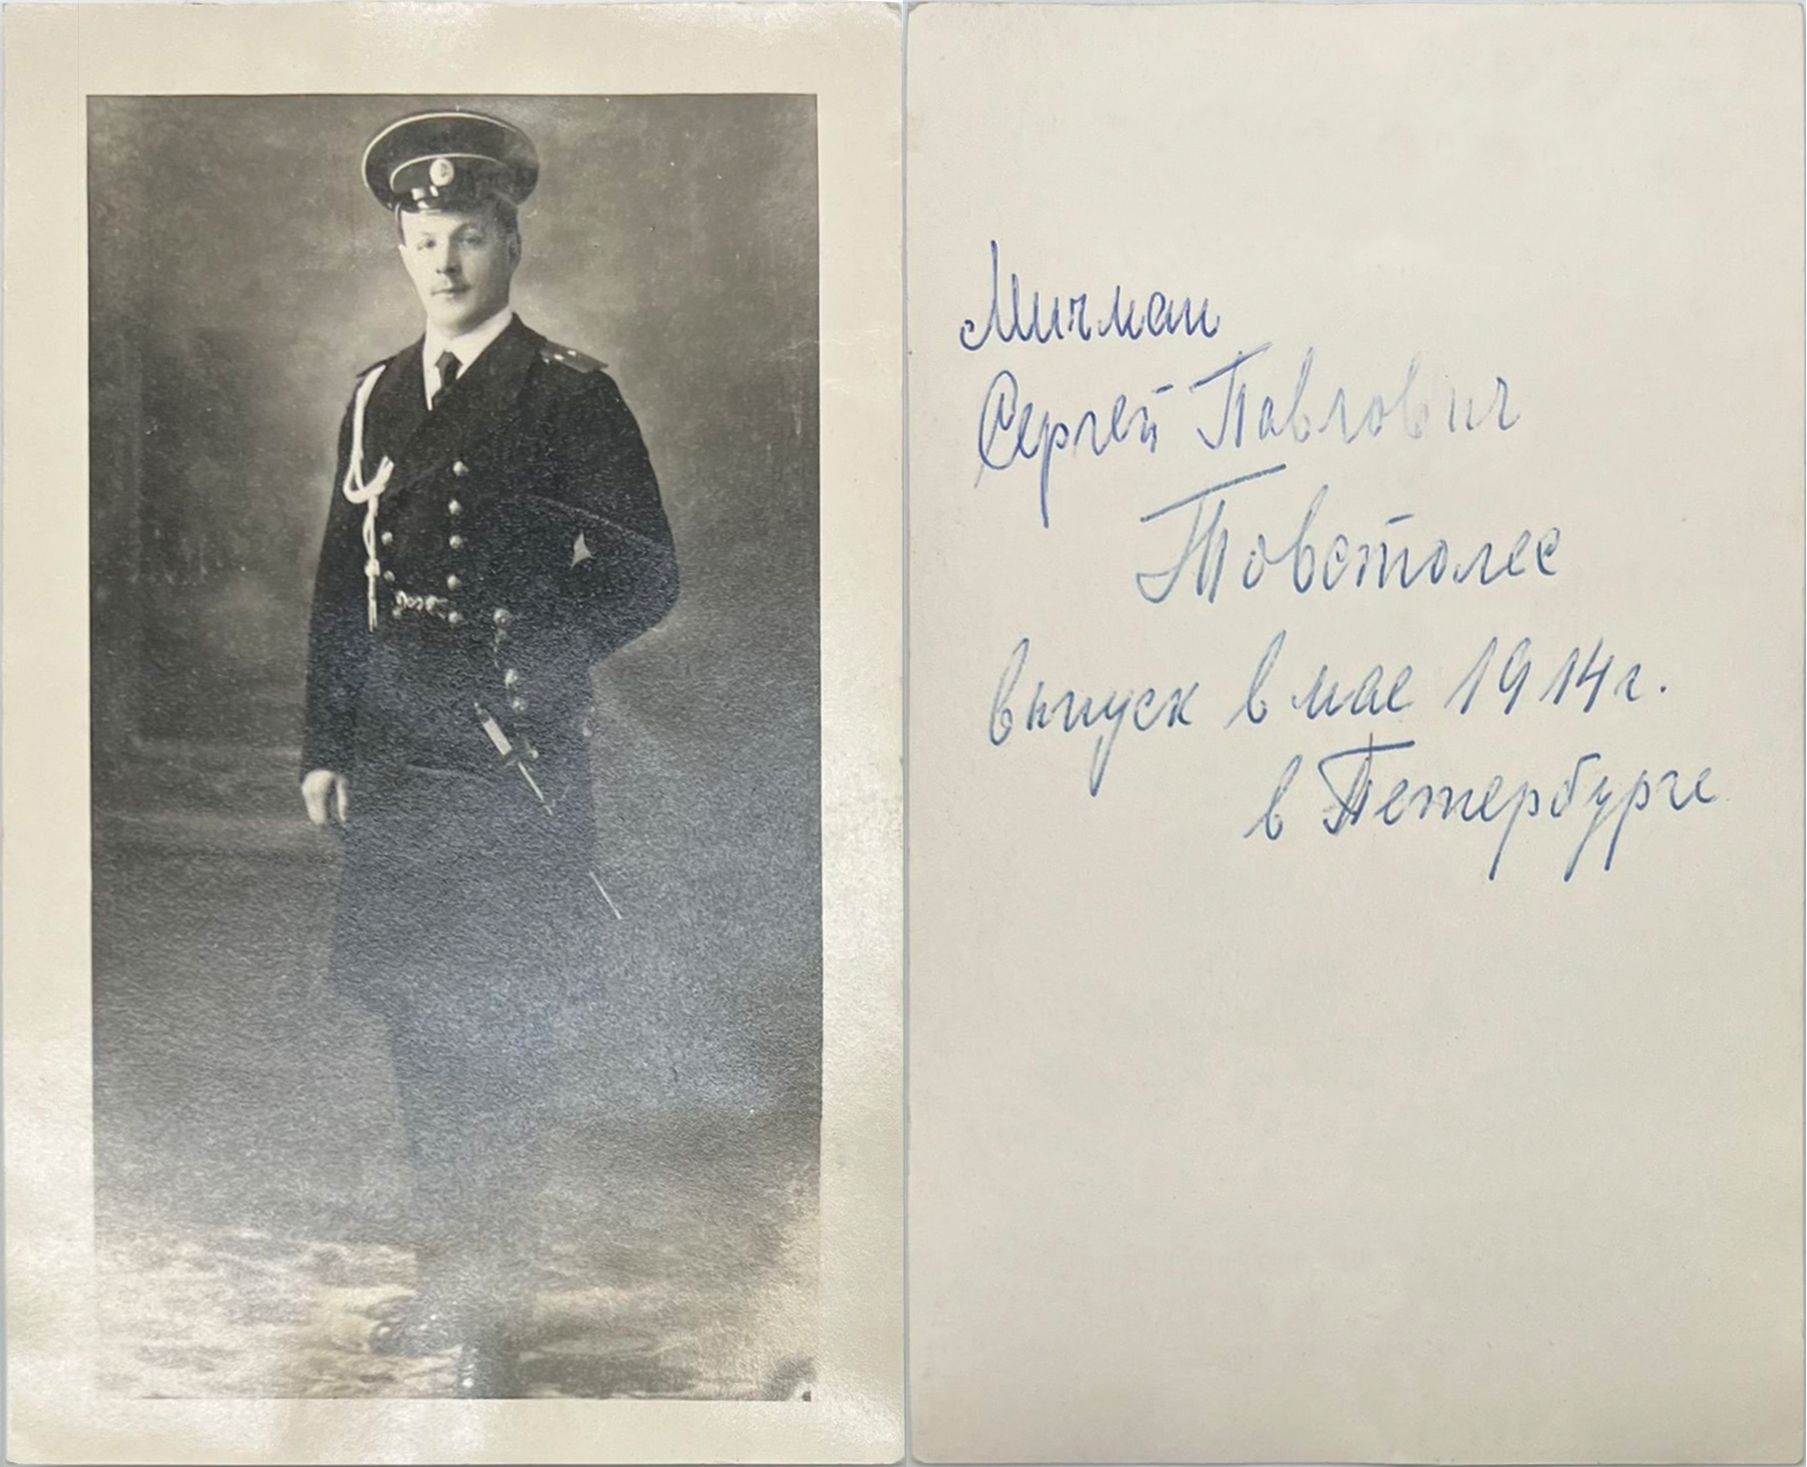 Мичман
Сергей Павлович
Товстолес
выпуск в мае 1914 г.
в Петербурге